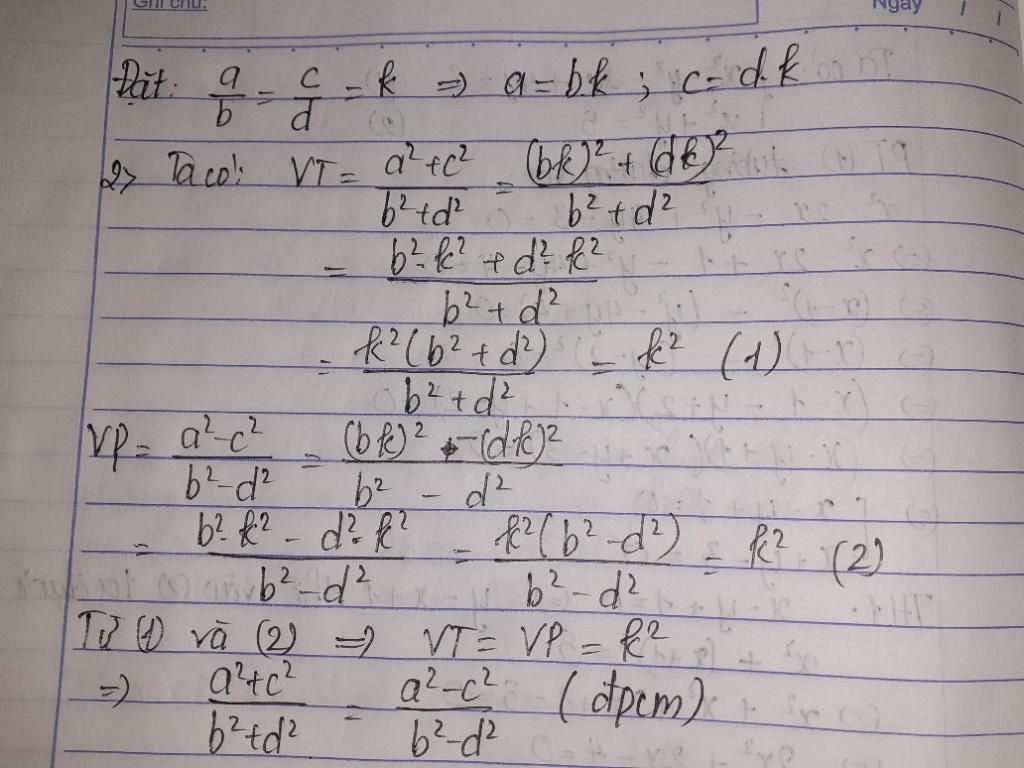 Ghi chú:
Ngày / /
Đặt: a/b = c/d = k => a = bk ; c = d.k
2> Ta có: VT = (a² + c²)/(b² + d²) = ((bk)² + (dk)²)/(b² + d²)
= (b².k² + d².k²)/(b² + d²)
= k²(b² + d²)/(b² + d²) = k² (1)
VP = (a² - c²)/(b² - d²) = ((bk)² - (dk)²)/(b² - d²)
= (b².k² - d².k²)/(b² - d²) = k²(b² - d²)/(b² - d²) = k² (2)
Từ (1) và (2) => VT = VP = k²
=> (a² + c²)/(b² + d²) = (a² - c²)/(b² - d²) (đpcm)